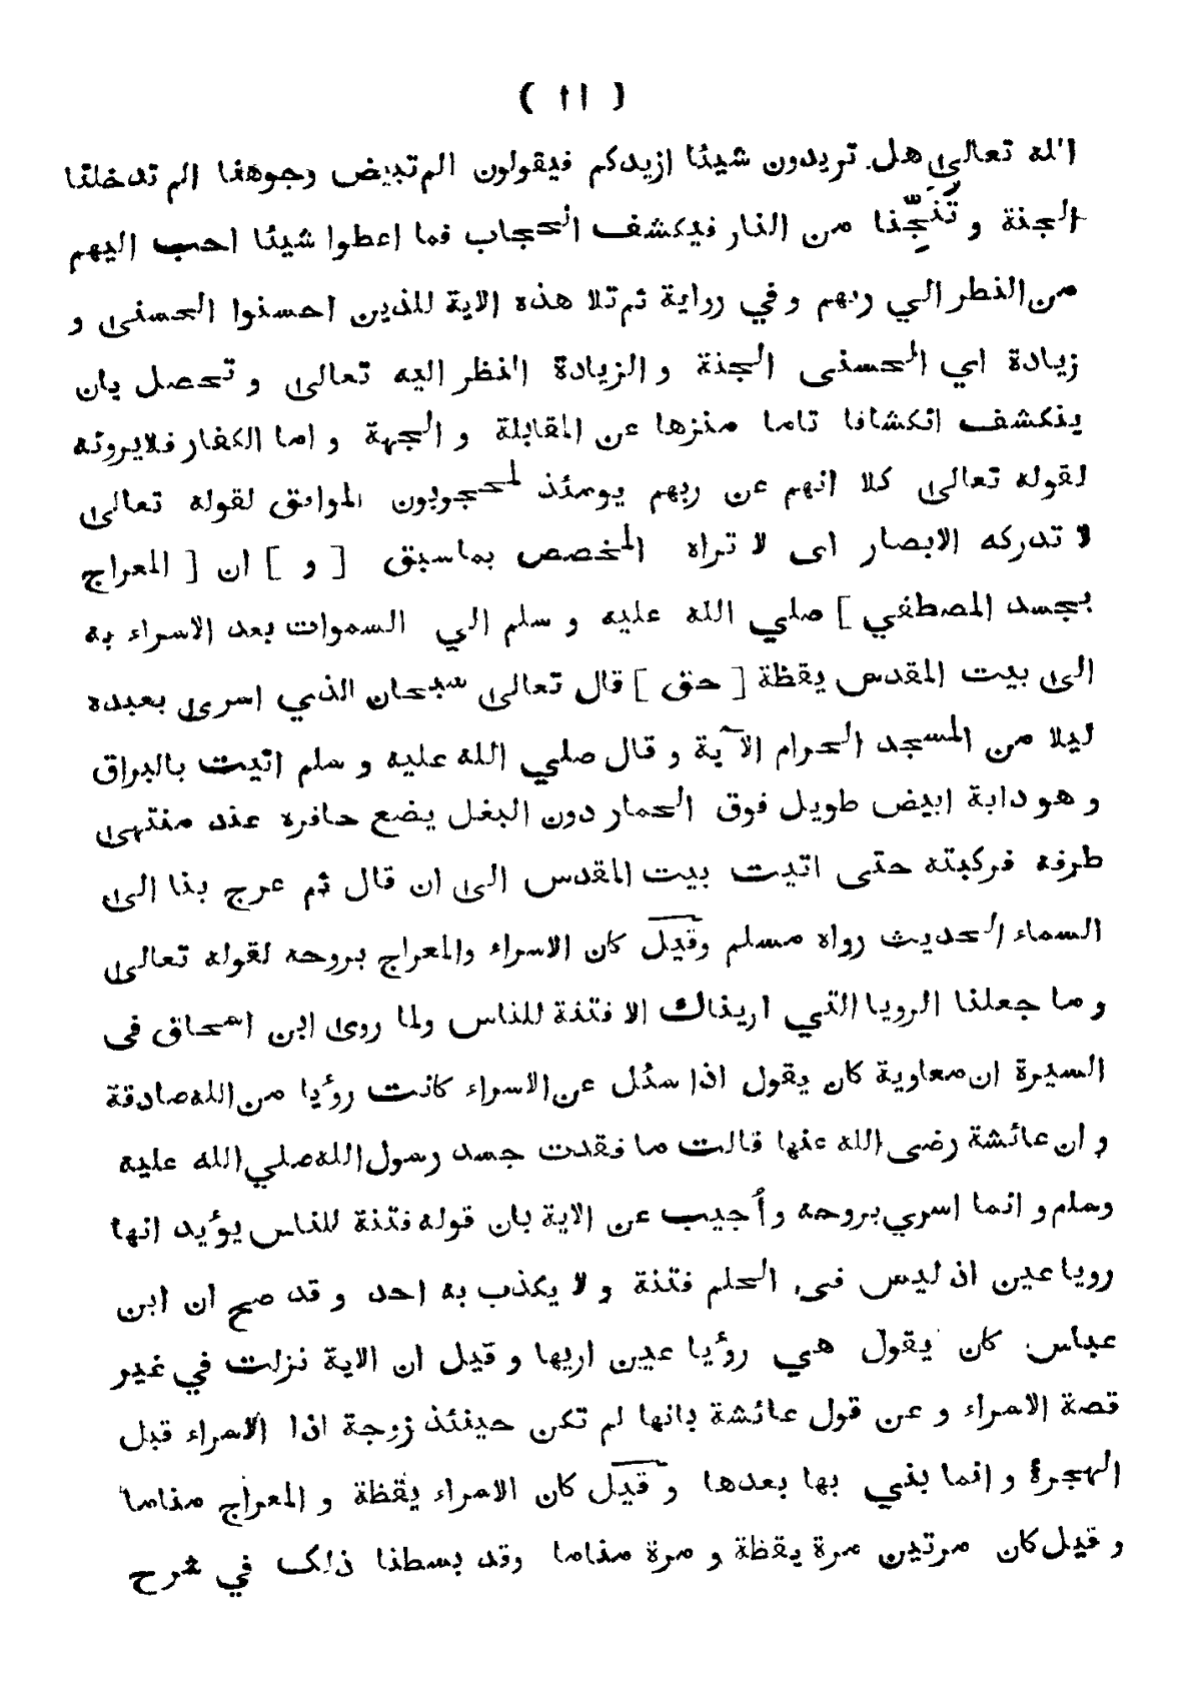 ( ١١ )
الله تعالى هل تريدون شيئا ازيدكم فيقولون الم تبيض وجوهنا الم تدخلنا
الجنة و تُنَجِّنا من النار فيكشف الحجاب فما اعطوا شيئا احب اليهم
من النظر الي ربهم و في رواية ثم تلا هذه الاية للذين احسنوا الحسنى و
زيادة اي الحسنى الجنة و الزيادة النظر اليه تعالى و تحصل بان
ينكشف انكشافا تاما منزها عن المقابلة و الجهة و اما الكفار فلايرونه
لقوله تعالى كلا انهم عن ربهم يومئذ لمحجوبون الموافق لقوله تعالى
لا تدركه الابصار اى لا تراه المخصص بماسبق [ و ] ان [ المعراج
بجسد المصطفي ] صلي الله عليه و سلم الي السموات بعد الاسراء به
الى بيت المقدس يقظة [ حق ] قال تعالى سبحان الذي اسرى بعبده
ليلا من المسجد الحرام الآية و قال صلي الله عليه و سلم اتيت بالبراق
و هو دابة ابيض طويل فوق الحمار دون البغل يضع حافره عند منتهى
طرفه فركبته حتى اتيت بيت المقدس الى ان قال ثم عرج بنا الى
السماء الحديث رواه مسلم وقيل كان الاسراء والمعراج بروحه لقوله تعالى
و ما جعلنا الرويا التي اريناك الا فتنة للناس ولما روى ابن اسحاق فى
السيرة ان معاوية كان يقول اذا سئل عن الاسراء كانت رؤيا من الله صادقة
و ان عائشة رضى الله عنها قالت ما فقدت جسد رسول الله صلي الله عليه
وسلم و انما اسري بروحه و أجيب عن الاية بان قوله فتنة للناس يؤيد انها
رويا عين اذ ليس فى الحلم فتنة و لا يكذب به احد و قد صح ان ابن
عباس كان يقول هي رؤيا عين اريها و قيل ان الاية نزلت في غير
قصة الاسراء و عن قول عائشة بانها لم تكن حينئذ زوجة اذا الاسراء قبل
الهجرة و انما بني بها بعدها و قيل كان الاسراء يقظة و المعراج مناما
و قيل كان مرتين مرة يقظة و مرة مناما وقد بسطنا ذلك في شرح